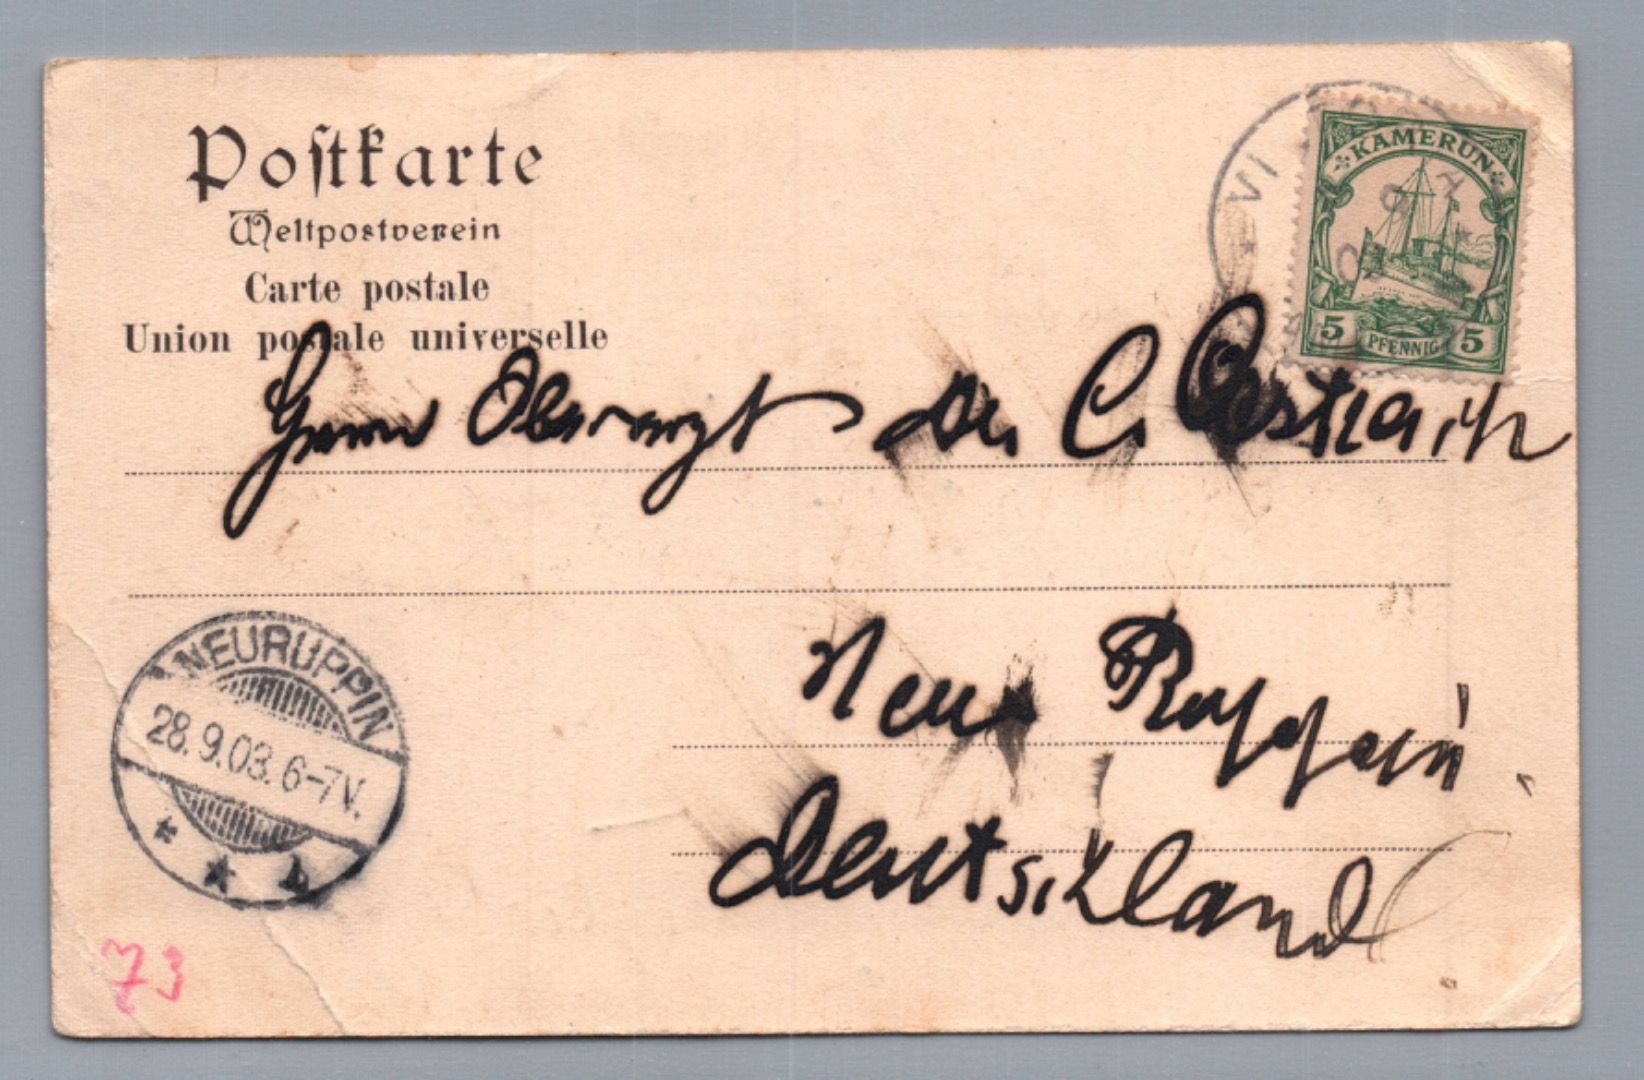 Postkarte
Weltpostverein
Carte postale
Union postale universelle
KAMERUN
5 PFENNIG 5
VI
Herrn Oberarzt Dr. C.
Neu Ruppin.
Deutschland
NEURUPPIN
28.9.03.6-7V.
73